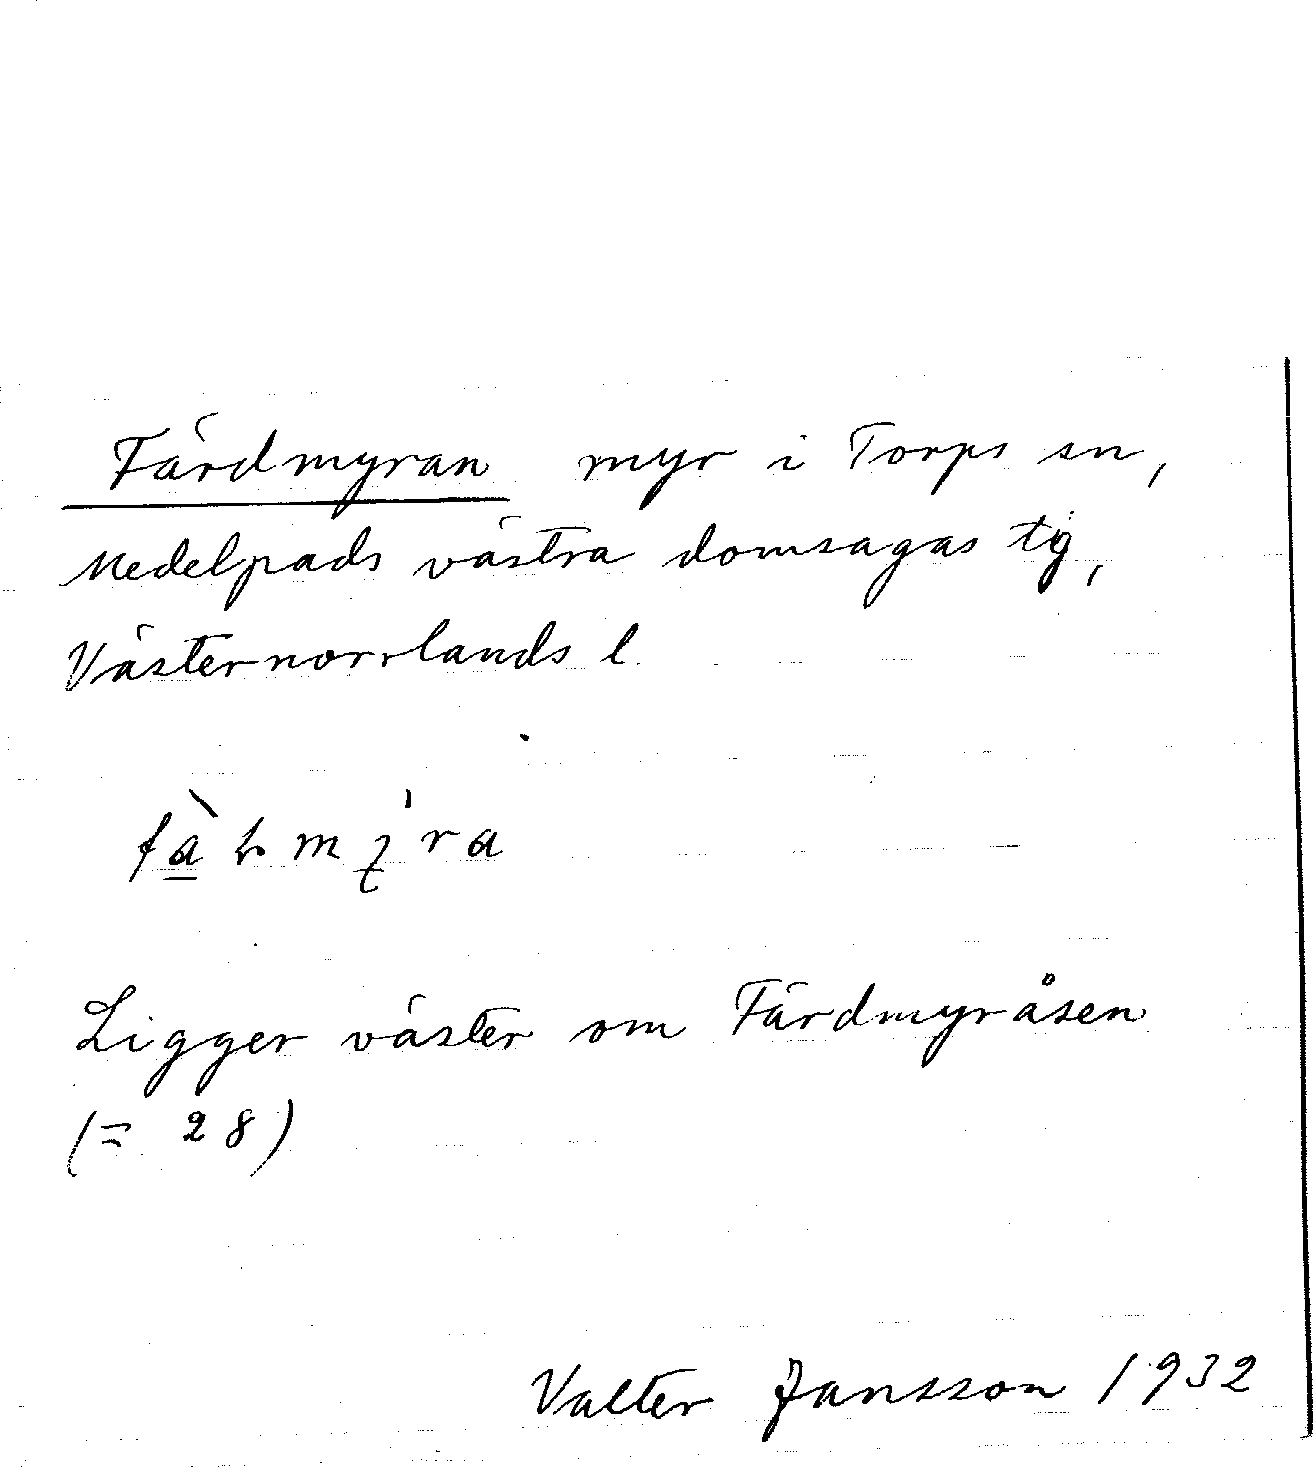 Färdmyran myr i Torps sn,
Medelpads västra domsagas tg,
Västernorrlands l
Ligger väster om Färdmyråsen
(= 28)
Valter Jansson 1932